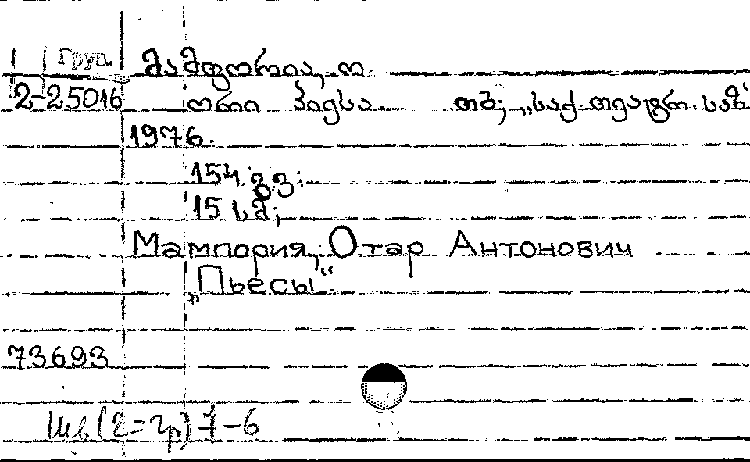 Груз. მამფორია, ო.
2-25016 ორი პიესა. თბ; „საქ თეატრ. საზ"
1976.
154 გვ;
15 სმ;
Мампория, Отар Антонович
„Пьесы“.
73693
Шв(2=гр)7-6